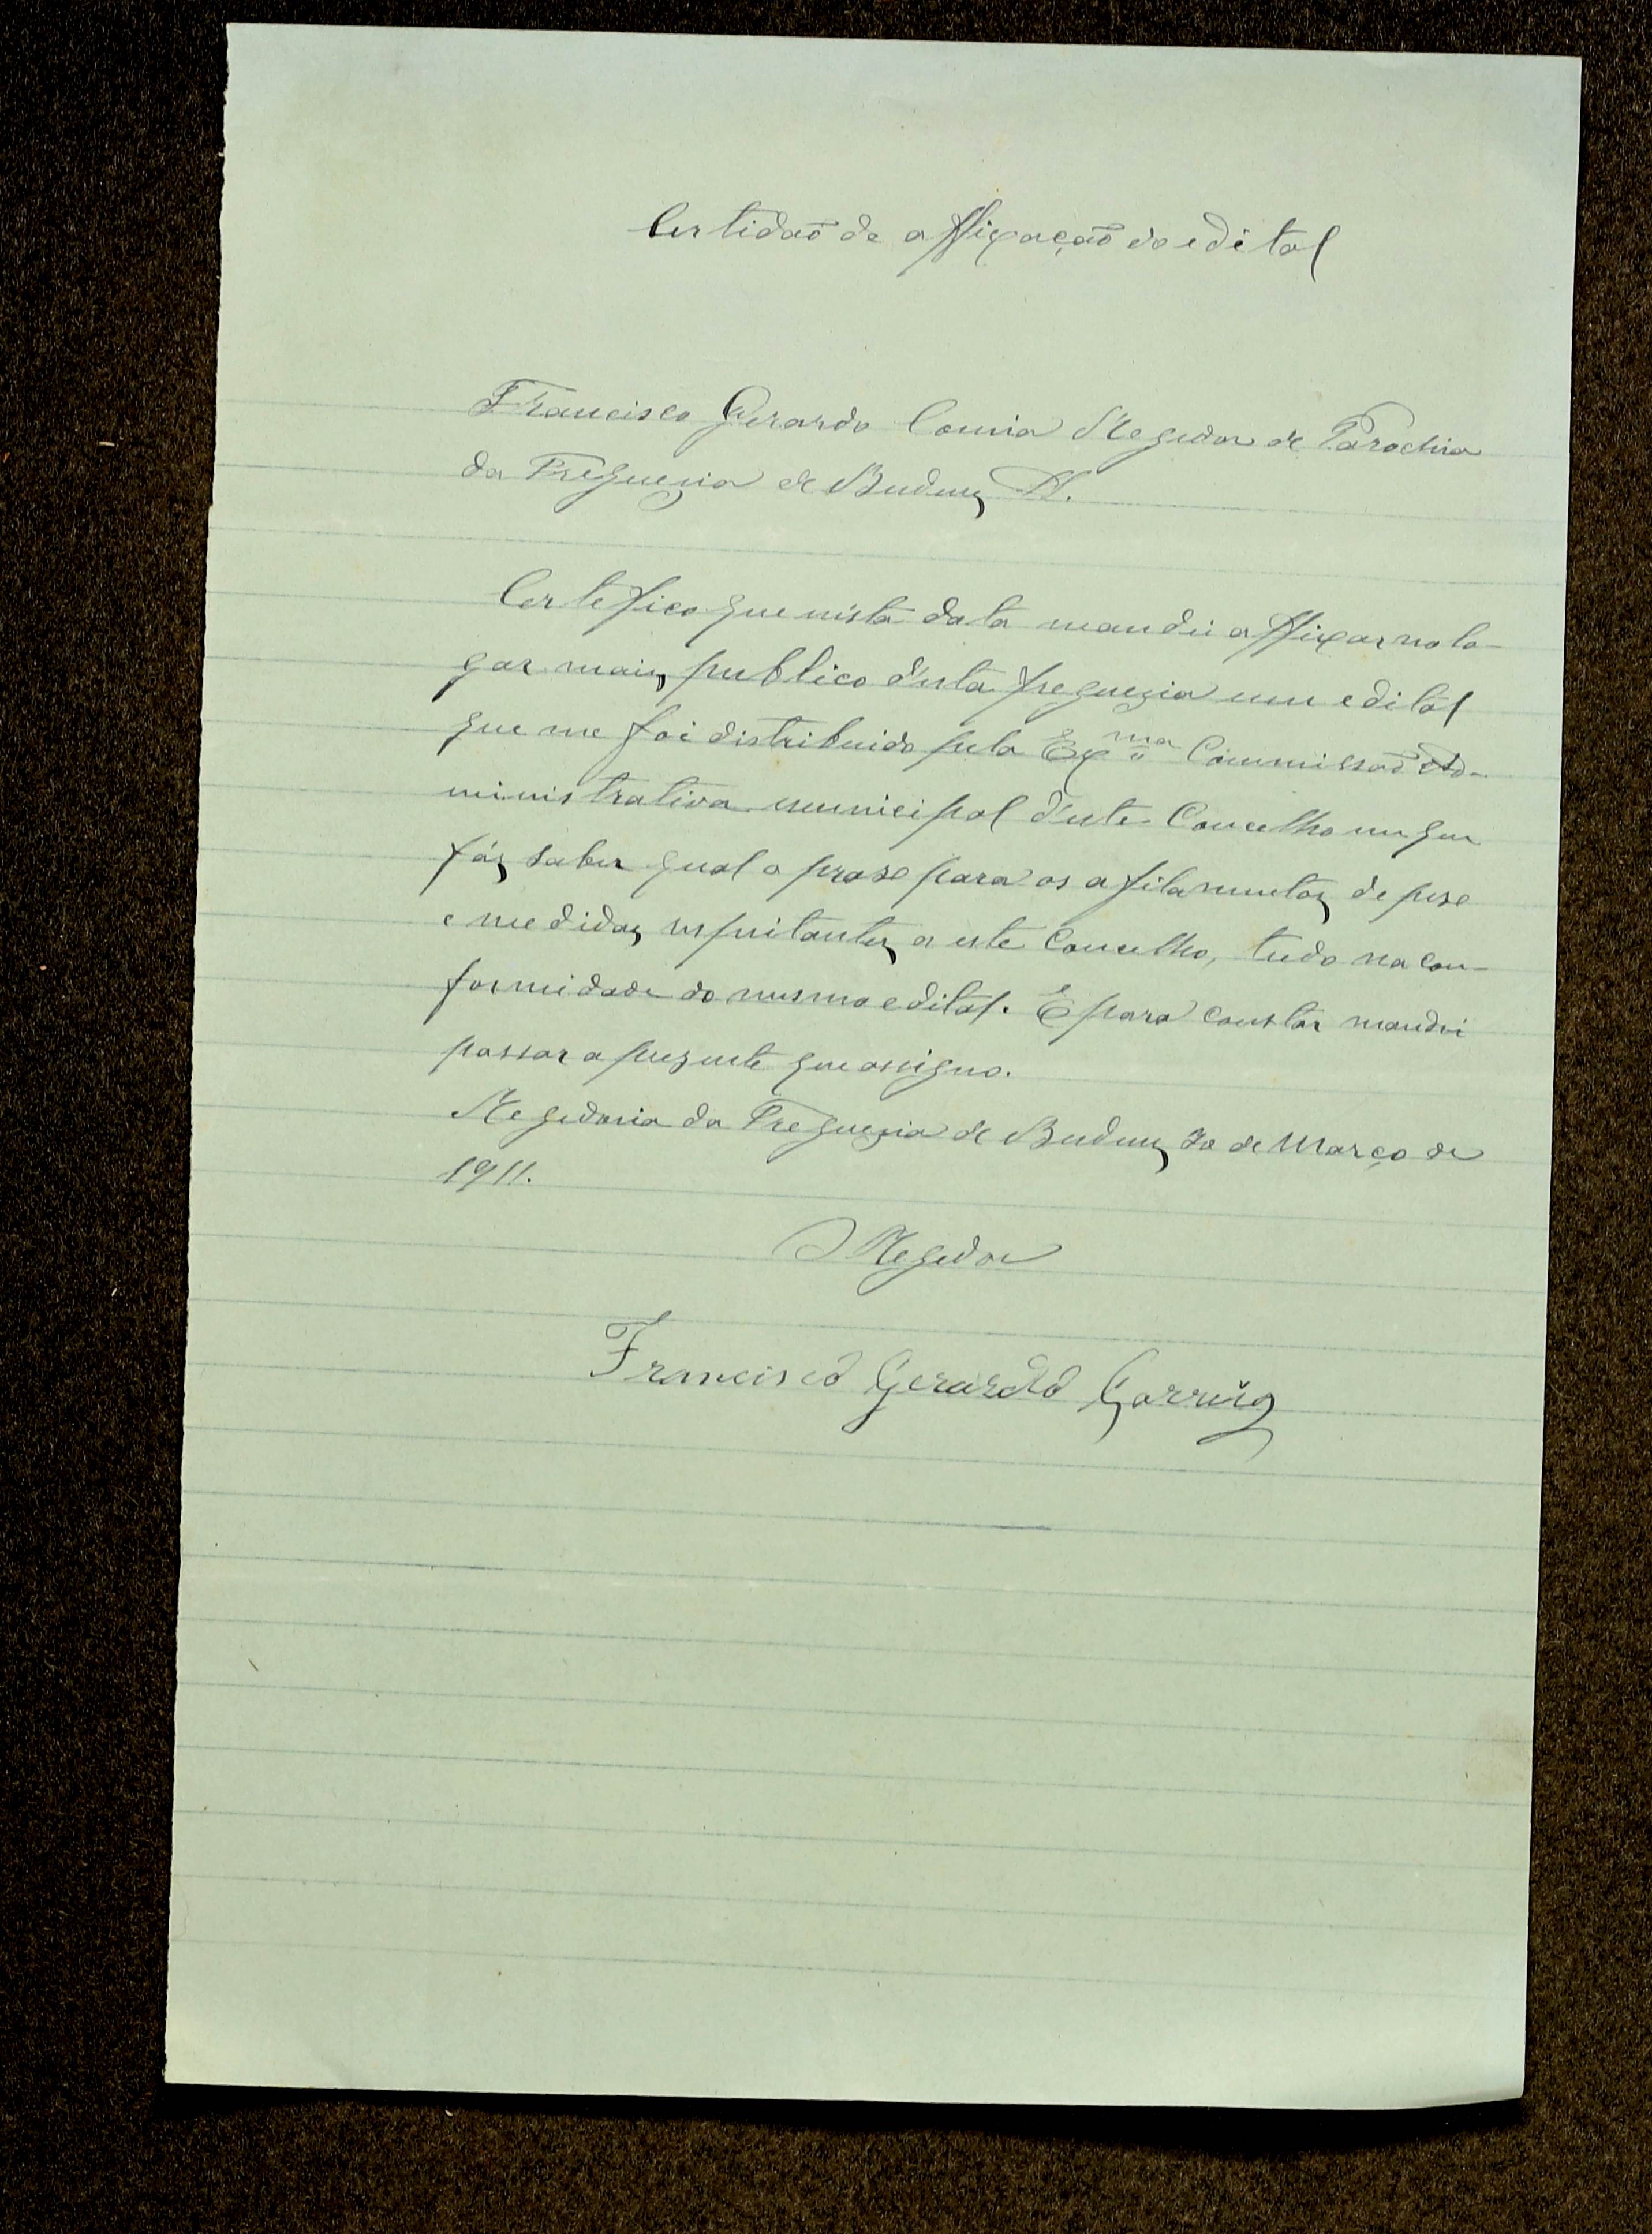 Certidaõ de affixaçaõ do edital
Francisco Gerardo Correia Regedor de Parochia
da Freguezia de Budens
Certefico que nésta data mandei affixar no lo-
gar mais publico d'esta freguezia um edital
que me foi distribuido pela Exma Commissaõ Ad-
ministrativa municipal d'este Concelho em que
fáz saber qual o praso para os afilamentos de peso
e medidas respeitantes a este Concelho, tudo na con-
formidade do mesmo edital. E para constar mandei
passar a prezente que assigno.
Regedoria da Freguezia de Budens 30 de Março de
1911.
O Regedor
Francisco Gerardo Correia